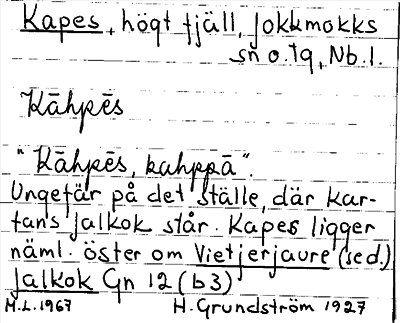 Kapes, högt fjäll, Jokkmokks
sn o. Tg, Nb. l.
Kāhpēs
"Kāhpēs, kahppā".
Ungefär på det ställe, där kar-
tans Jalkok står. Kapes ligger
näml. öster om Vietjerjaure (sed.)
Jalkok Gn 12 (b3)
M.L. 1967 H. Grundström 1927